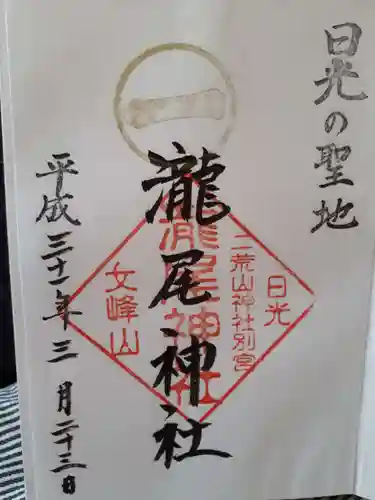 日光の聖地
一
瀧尾神社
平成三十一年三月二十三日
日光
二荒山神社別宮
瀧尾神社
女峰山